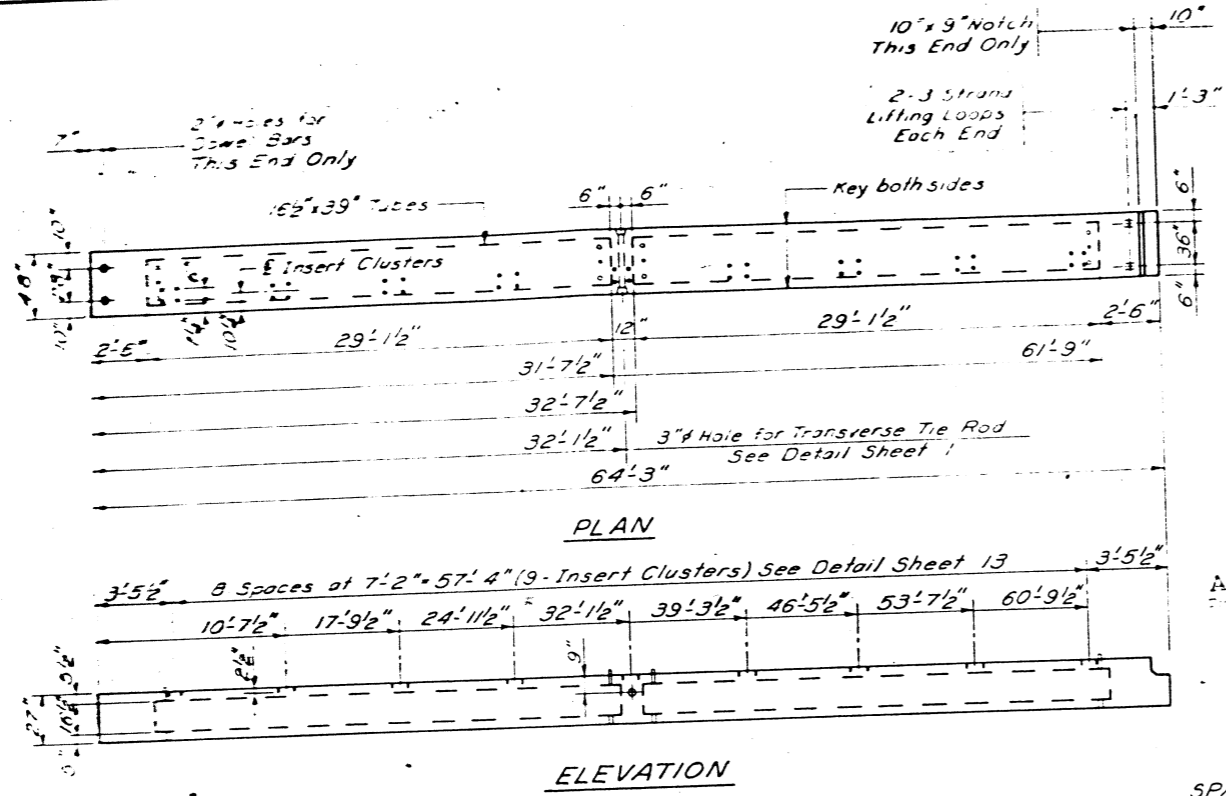 10" x 9" Notch
This End Only
10"
2-3 Strand
Lifting Loops
Each End
1'-3"
7"
2"φ Holes for
Dowel Bars
This End Only
16½" x 39" Tubes
6"
6"
Key both sides
6"
36"
6"
48"
10"
10"
℄ Insert Clusters
29'-1½"
12"
29'-1½"
2'-6"
31'-7½"
61'-9"
32'-7½"
32'-1½"
3"φ Hole for Transverse Tie Rod
See Detail Sheet 1
64'-3"
PLAN
3'-5½"
8 Spaces at 7'-2" = 57'-4" (9-Insert Clusters) See Detail Sheet 13
3'-5½"
10'-7½"
17'-9½"
24'-11½"
32'-1½"
39'-3½"
46'-5½"
53'-7½"
60'-9½"
A
27"
5½"
16½"
9"
ELEVATION
SPA